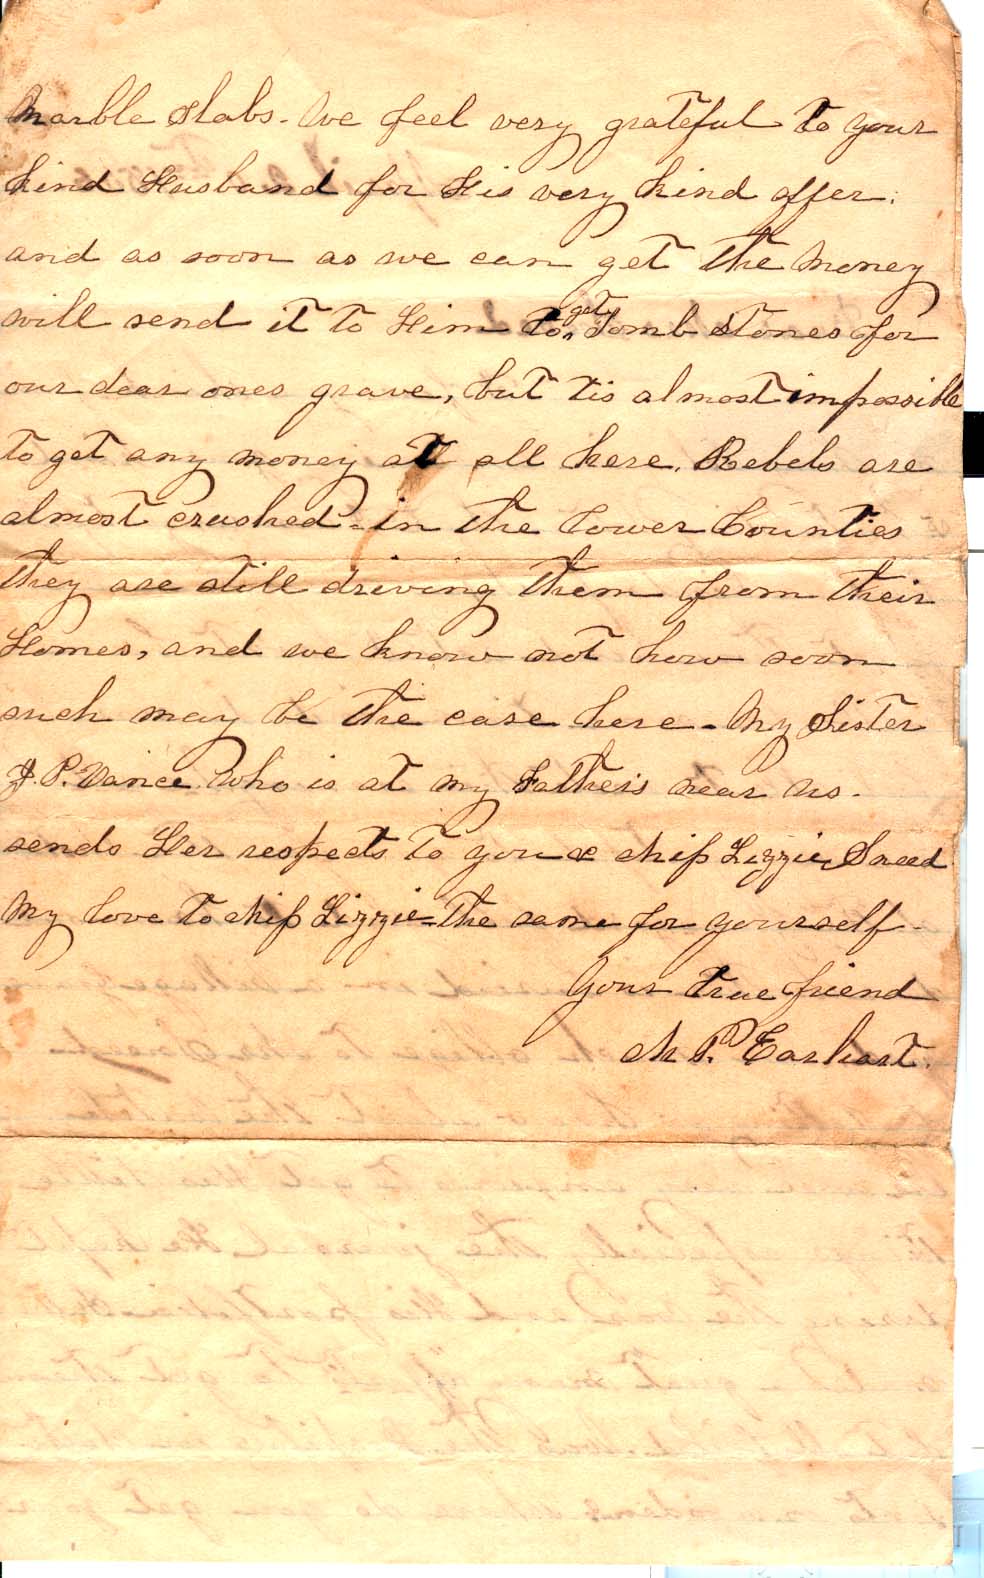 Marble Slabs. We feel very grateful to your
kind Husband for His very kind offer.
and as soon as we can get the Money
will send it to Him to get Tomb stones for
our dear ones grave, but tis almost impossible
to get any money at all here. Rebels are
almost crushed - in the Lower Counties
they are still driving them from their
Homes, and we know not how soon
such may be the case here - My Sister
J. P. Vance who is at my Father's near us.
sends Her respects to you & Miss Lizzie Sneed
My love to Miss Lizzie - the same for yourself -
Your true friend
M P. Earhart.